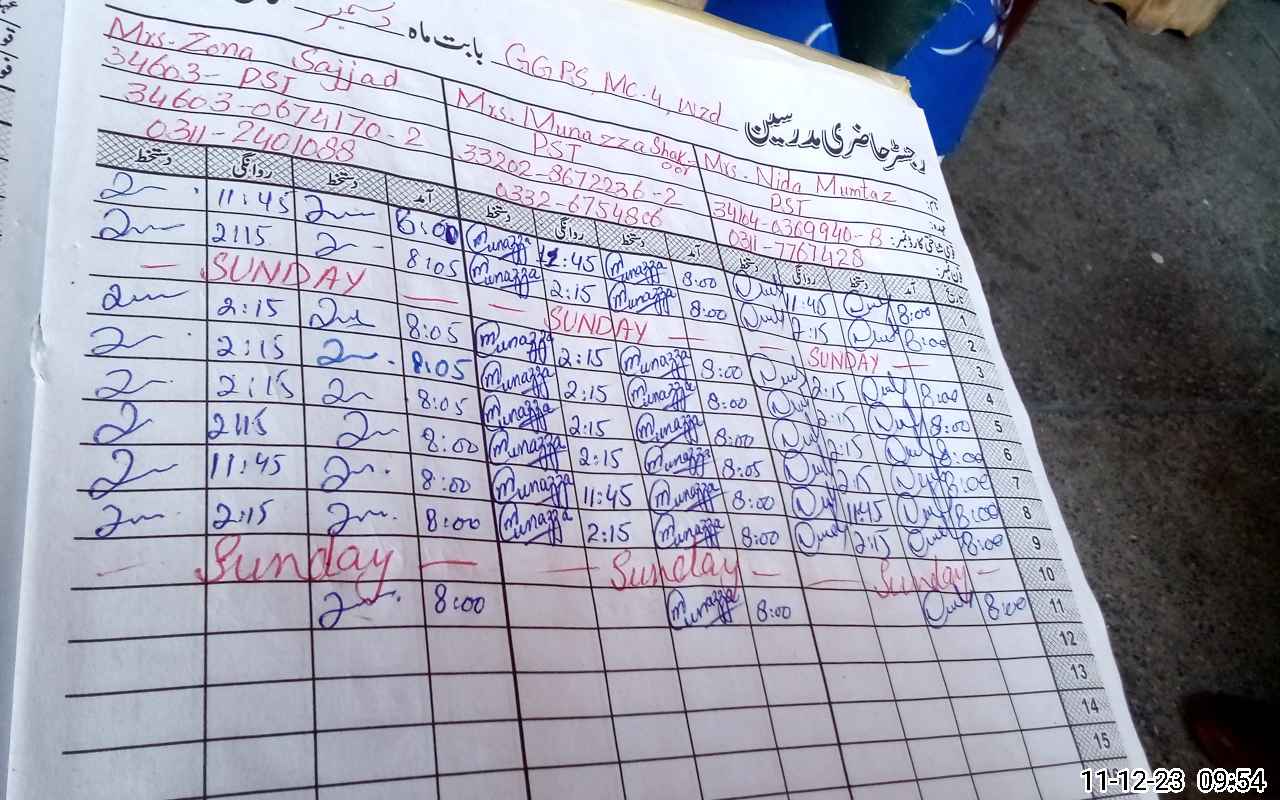 رجسٹر حاضری مدرسین GGPS, MC.4, wzd بابت ماہ دسمبر
نام: Mrs. Nida Mumtaz Mrs. Munazza Shakoor Mrs. Zona Sajjad
عہدہ: PST PST 34603- PST
قومی شناختی کارڈ نمبر: 34104-0369940-8 33202-8672236-2 34603-0674170-2
فون نمبر: 0311-7767428 0332-6754806 0311-2401088
تاریخ آمد دستخط روانگی دستخط آمد دستخط روانگی دستخط آمد دستخط روانگی دستخط
1 8:00 11:45 8:00 Munazza 11:45 Munazza 8:00 11:45
2 8:00 2:15 8:00 Munazza 2:15 Munazza 8:05 2:15
3 — SUNDAY — — SUNDAY — — SUNDAY —
4 8:00 2:15 8:00 Munazza 2:15 Munazza 8:05 2:15
5 8:00 2:15 8:00 Munazza 2:15 Munazza 8:05 2:15
6 8:00 2:15 8:00 Munazza 2:15 Munazza 8:05 2:15
7 8:00 2:15 8:05 Munazza 2:15 Munazza 8:00 2:15
8 8:00 11:45 8:00 Munazza 11:45 Munazza 8:00 11:45
9 8:00 2:15 8:00 Munazza 2:15 Munazza 8:00 2:15
10 — Sunday — — Sunday — — Sunday —
11 8:00 8:00 Munazza 8:00
12
13
14
15
11-12-23 09:54